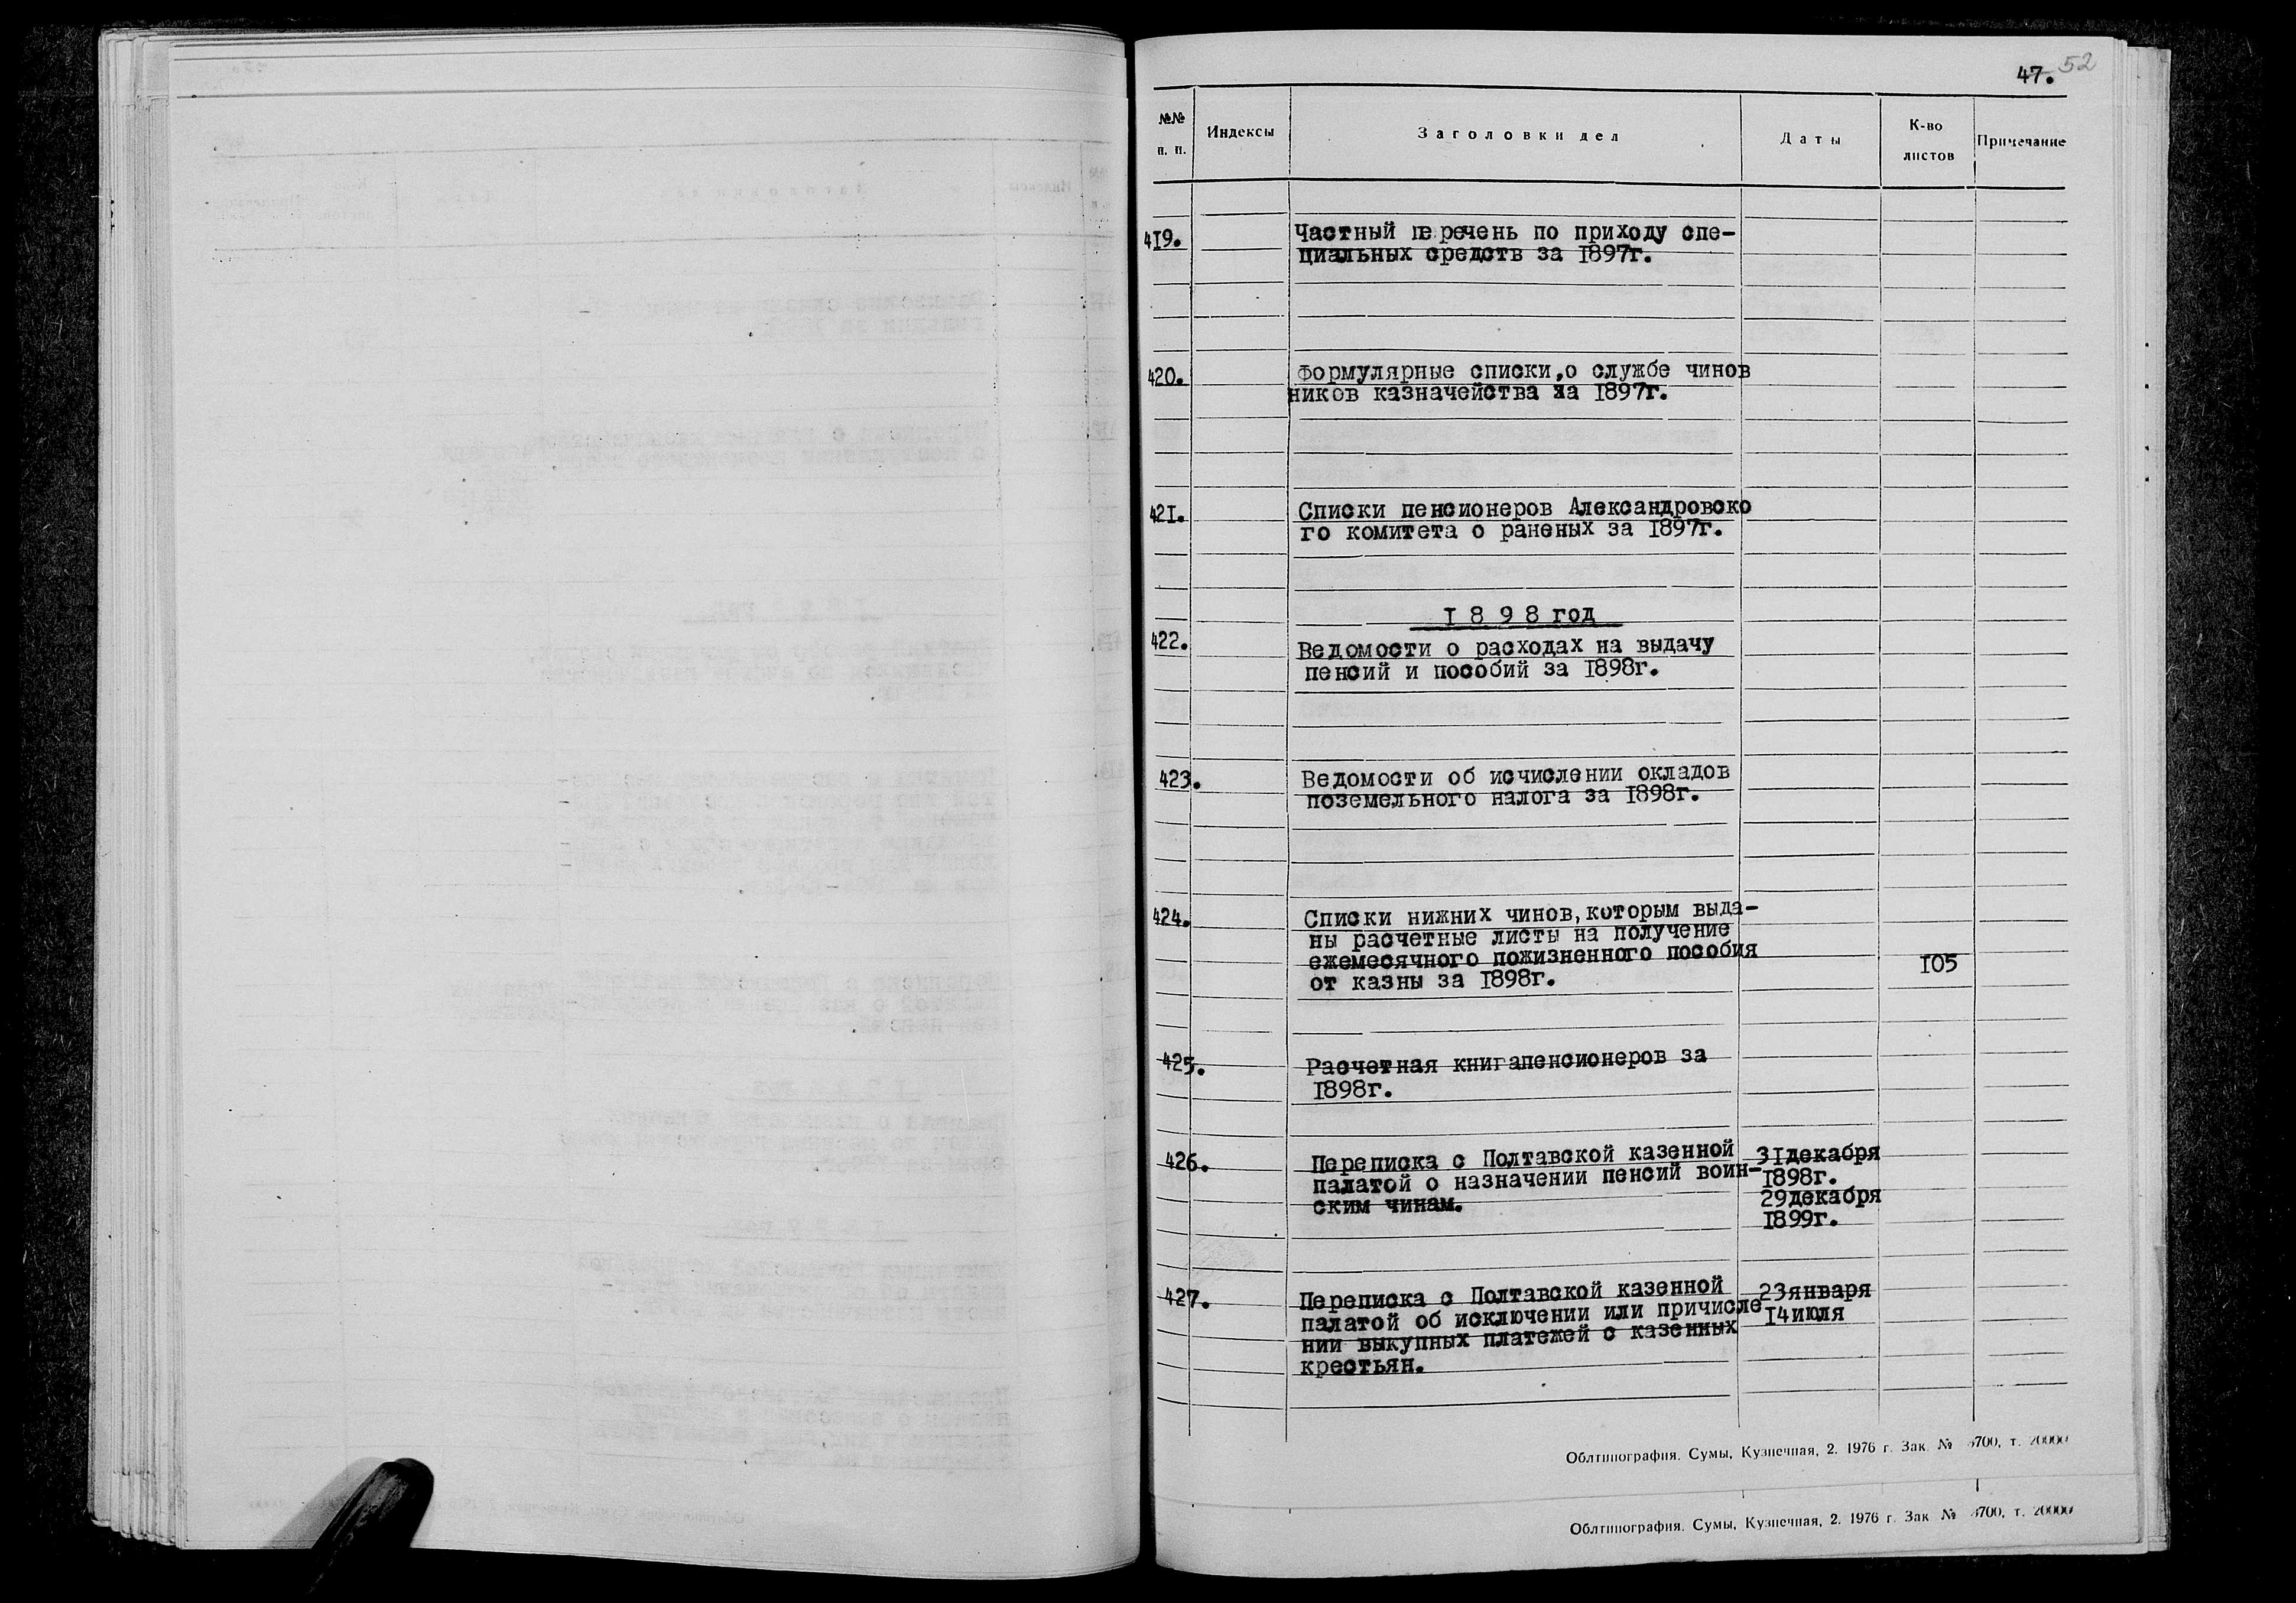 47. 52
№№ п. п. Индексы Заголовки дел Даты К-во листов Примечание
419. Частный перечень по приходу спе-
циальных средств за 1897г.
420. Формулярные списки,о службе чинов
ников казначейства за 1897г.
421. Списки пенсионеров Александровско
го комитета о раненых за 1897г.
1 8 9 8 год
422. Ведомости о расходах на выдачу
пенсий и пособий за 1898г.
423. Ведомости об исчислении окладов
поземельного налога за 1898г.
424. Списки нижних чинов,которым выда-
ны расчетные листы на получение
ежемесячного пожизненного пособия 105
от казны за 1898г.
425. Расчетная книгапенсионеров за
1898г.
426. Переписка с Полтавской казенной 31декабря
палатой о назначении пенсий воин- 1898г.
ским чинам. 29декабря
1899г.
427. Переписка с Полтавской казенной 23января
палатой об исключении или причисле 14июля
нии выкупных платежей с казенных
крестьян.
Облтипография. Сумы, Кузнечная, 2. 1976 г. Зак. № 700, т. 20000
Облтипография. Сумы, Кузнечная, 2. 1976 г. Зак. № 700, т. 20000